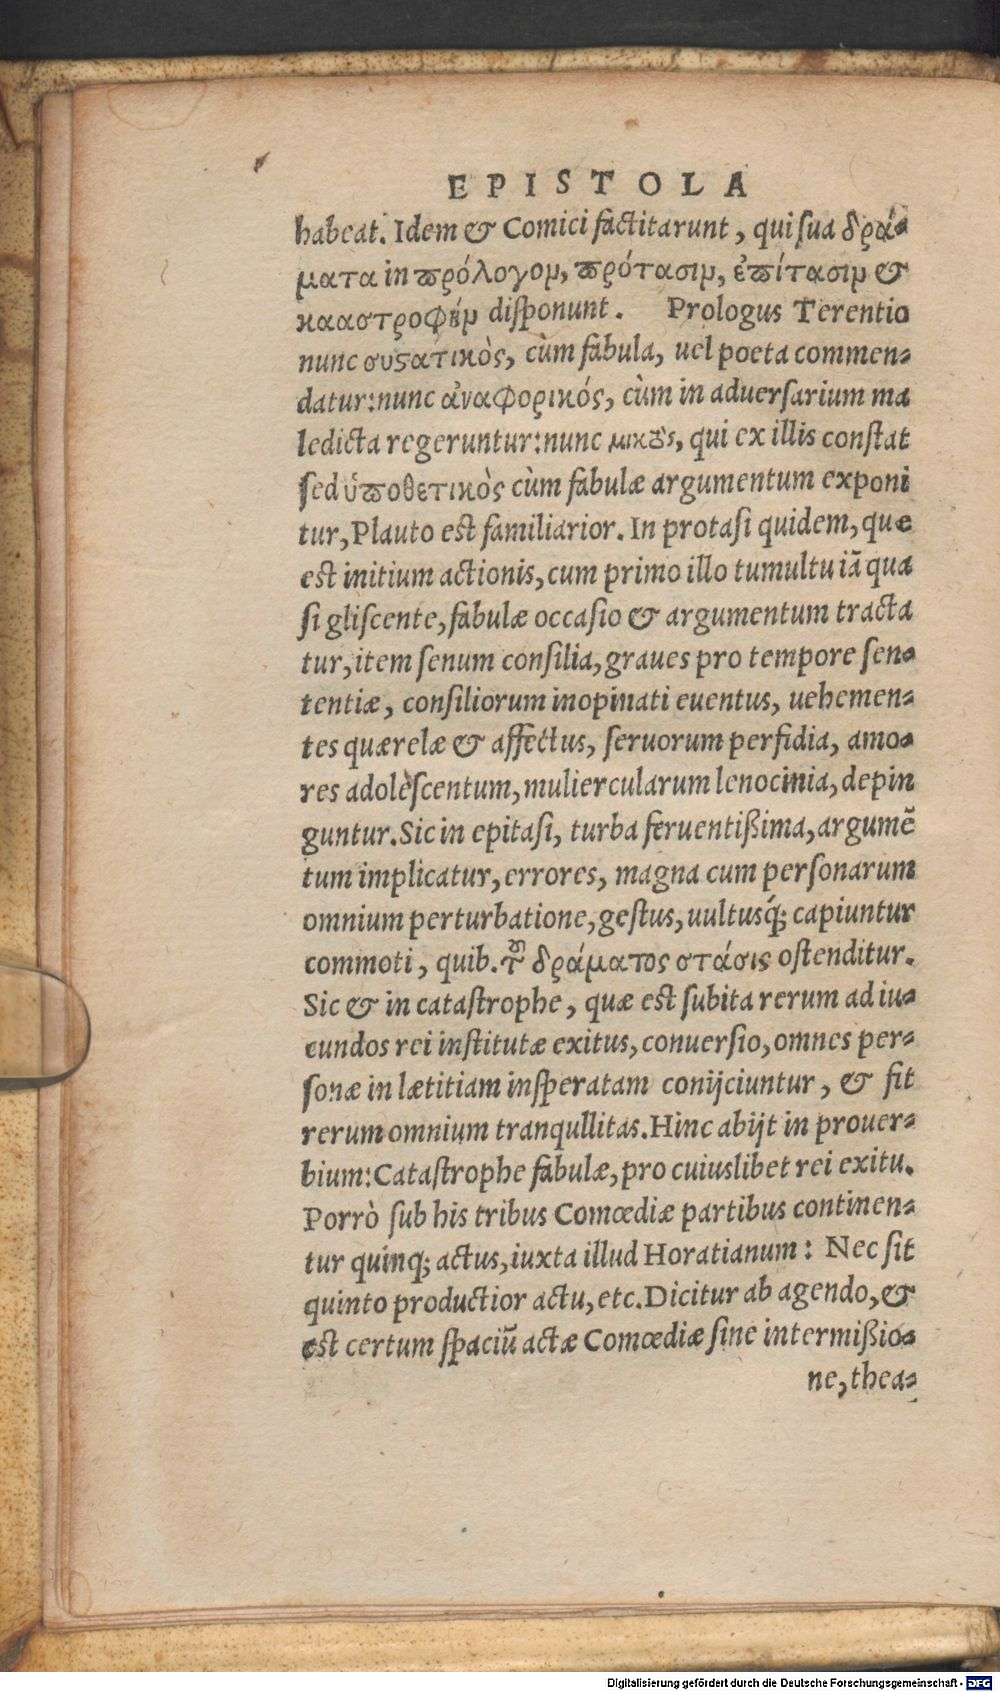 EPISTOLA
habeat. Idem & Comici factitarunt, qui sua δρά-
ματα in πρόλογομ, πρότασιμ, ἐπίτασιμ &
κααστροφέμ disponunt. Prologus Terentio
nunc συϛατικὸς, cùm fabula, uel poeta commen-
datur: nunc ἀναφορικός, cùm in aduersarium ma
ledicta regeruntur: nunc μικȣ̀ς, qui ex illis constat
sed ὑποθετικὸς cùm fabulæ argumentum exponi
tur, Plauto est familiarior. In protasi quidem, que
est initium actionis, cum primo illo tumultu iā qua
si gliscente, fabulæ occasio & argumentum tracta
tur, item senum consilia, graues pro tempore sen-
tentiæ, consiliorum inopinati euentus, uehemen-
tes quærelæ & affectus, seruorum perfidia, amo-
res adolèscentum, muliercularum lenocinia, depin
guntur. Sic in epitasi, turba feruentißima, argumē
tum implicatur, errores, magna cum personarum
omnium perturbatione, gestus, uultusq́; capiuntur
commoti, quib. δράματος στάσις ostenditur.
Sic & in catastrophe, quæ est subita rerum ad iu-
cundos rei institutæ exitus, conuersio, omnes per-
sonæ in lætitiam insperatam conijciuntur, & fit
rerum omnium tranqullitas. Hinc abijt in prouer-
bium: Catastrophe fabulæ, pro cuiuslibet rei exitu.
Porrò sub his tribus Comœdiæ partibus continen-
tur quinq; actus, iuxta illud Horatianum: Nec sit
quinto productior actu, etc. Dicitur ab agendo, &
est certum spaciū actæ Comœdiæ sine intermißio-
ne, thea-
Digitalisierung gefördert durch die Deutsche Forschungsgemeinschaft - DFG